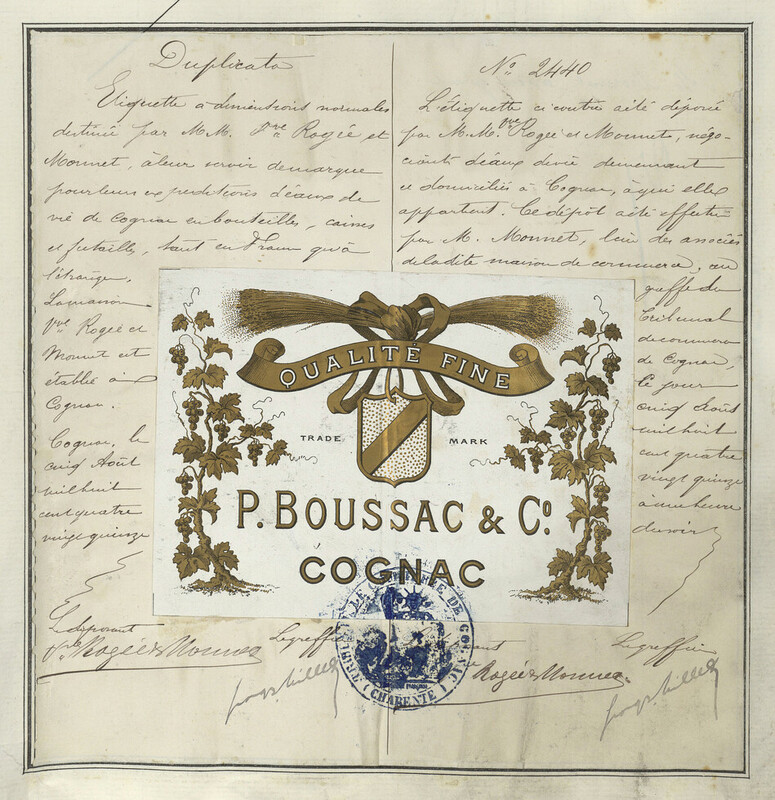 Duplicata
Etiquette à dimensions normales
destinée par M.M. Vve Rogée et
Monnet, à leur servir de marque
pour leurs expéditions d'eaux de
vie de Cognac en bouteilles, caisses
et futailles, tant en France qu'à
l'étranger.
La maison
Vve Rogée et
Monnet est
établie à
Cognac.
Cognac, le
cinq Août
mil huit
cent quatre
vingt quinze
Le déposant
Vve Rogée & Monnet
Le greffier
No. 2440
L'étiquette ci contre a été déposée
par M.M. Vve Rogée et Monnet, négo-
ciants d'eaux de vie demeurant
et domiciliés à Cognac, à qui elle
appartient. Ce dépôt a été effectué
par M. Monnet, l'un des associés
de la dite maison de commerce, au
greffe du
Tribunal
de commerce
de Cognac,
le jour
cinq Août
mil huit
cent quatre
vingt quinze
à une heure
du soir
Rogée & Monnet
Le greffier
QUALITÉ FINE
TRADE MARK
P. BOUSSAC & Co.
COGNAC
TRIBUNAL DE COMMERCE DE COGNAC
(CHARENTE)